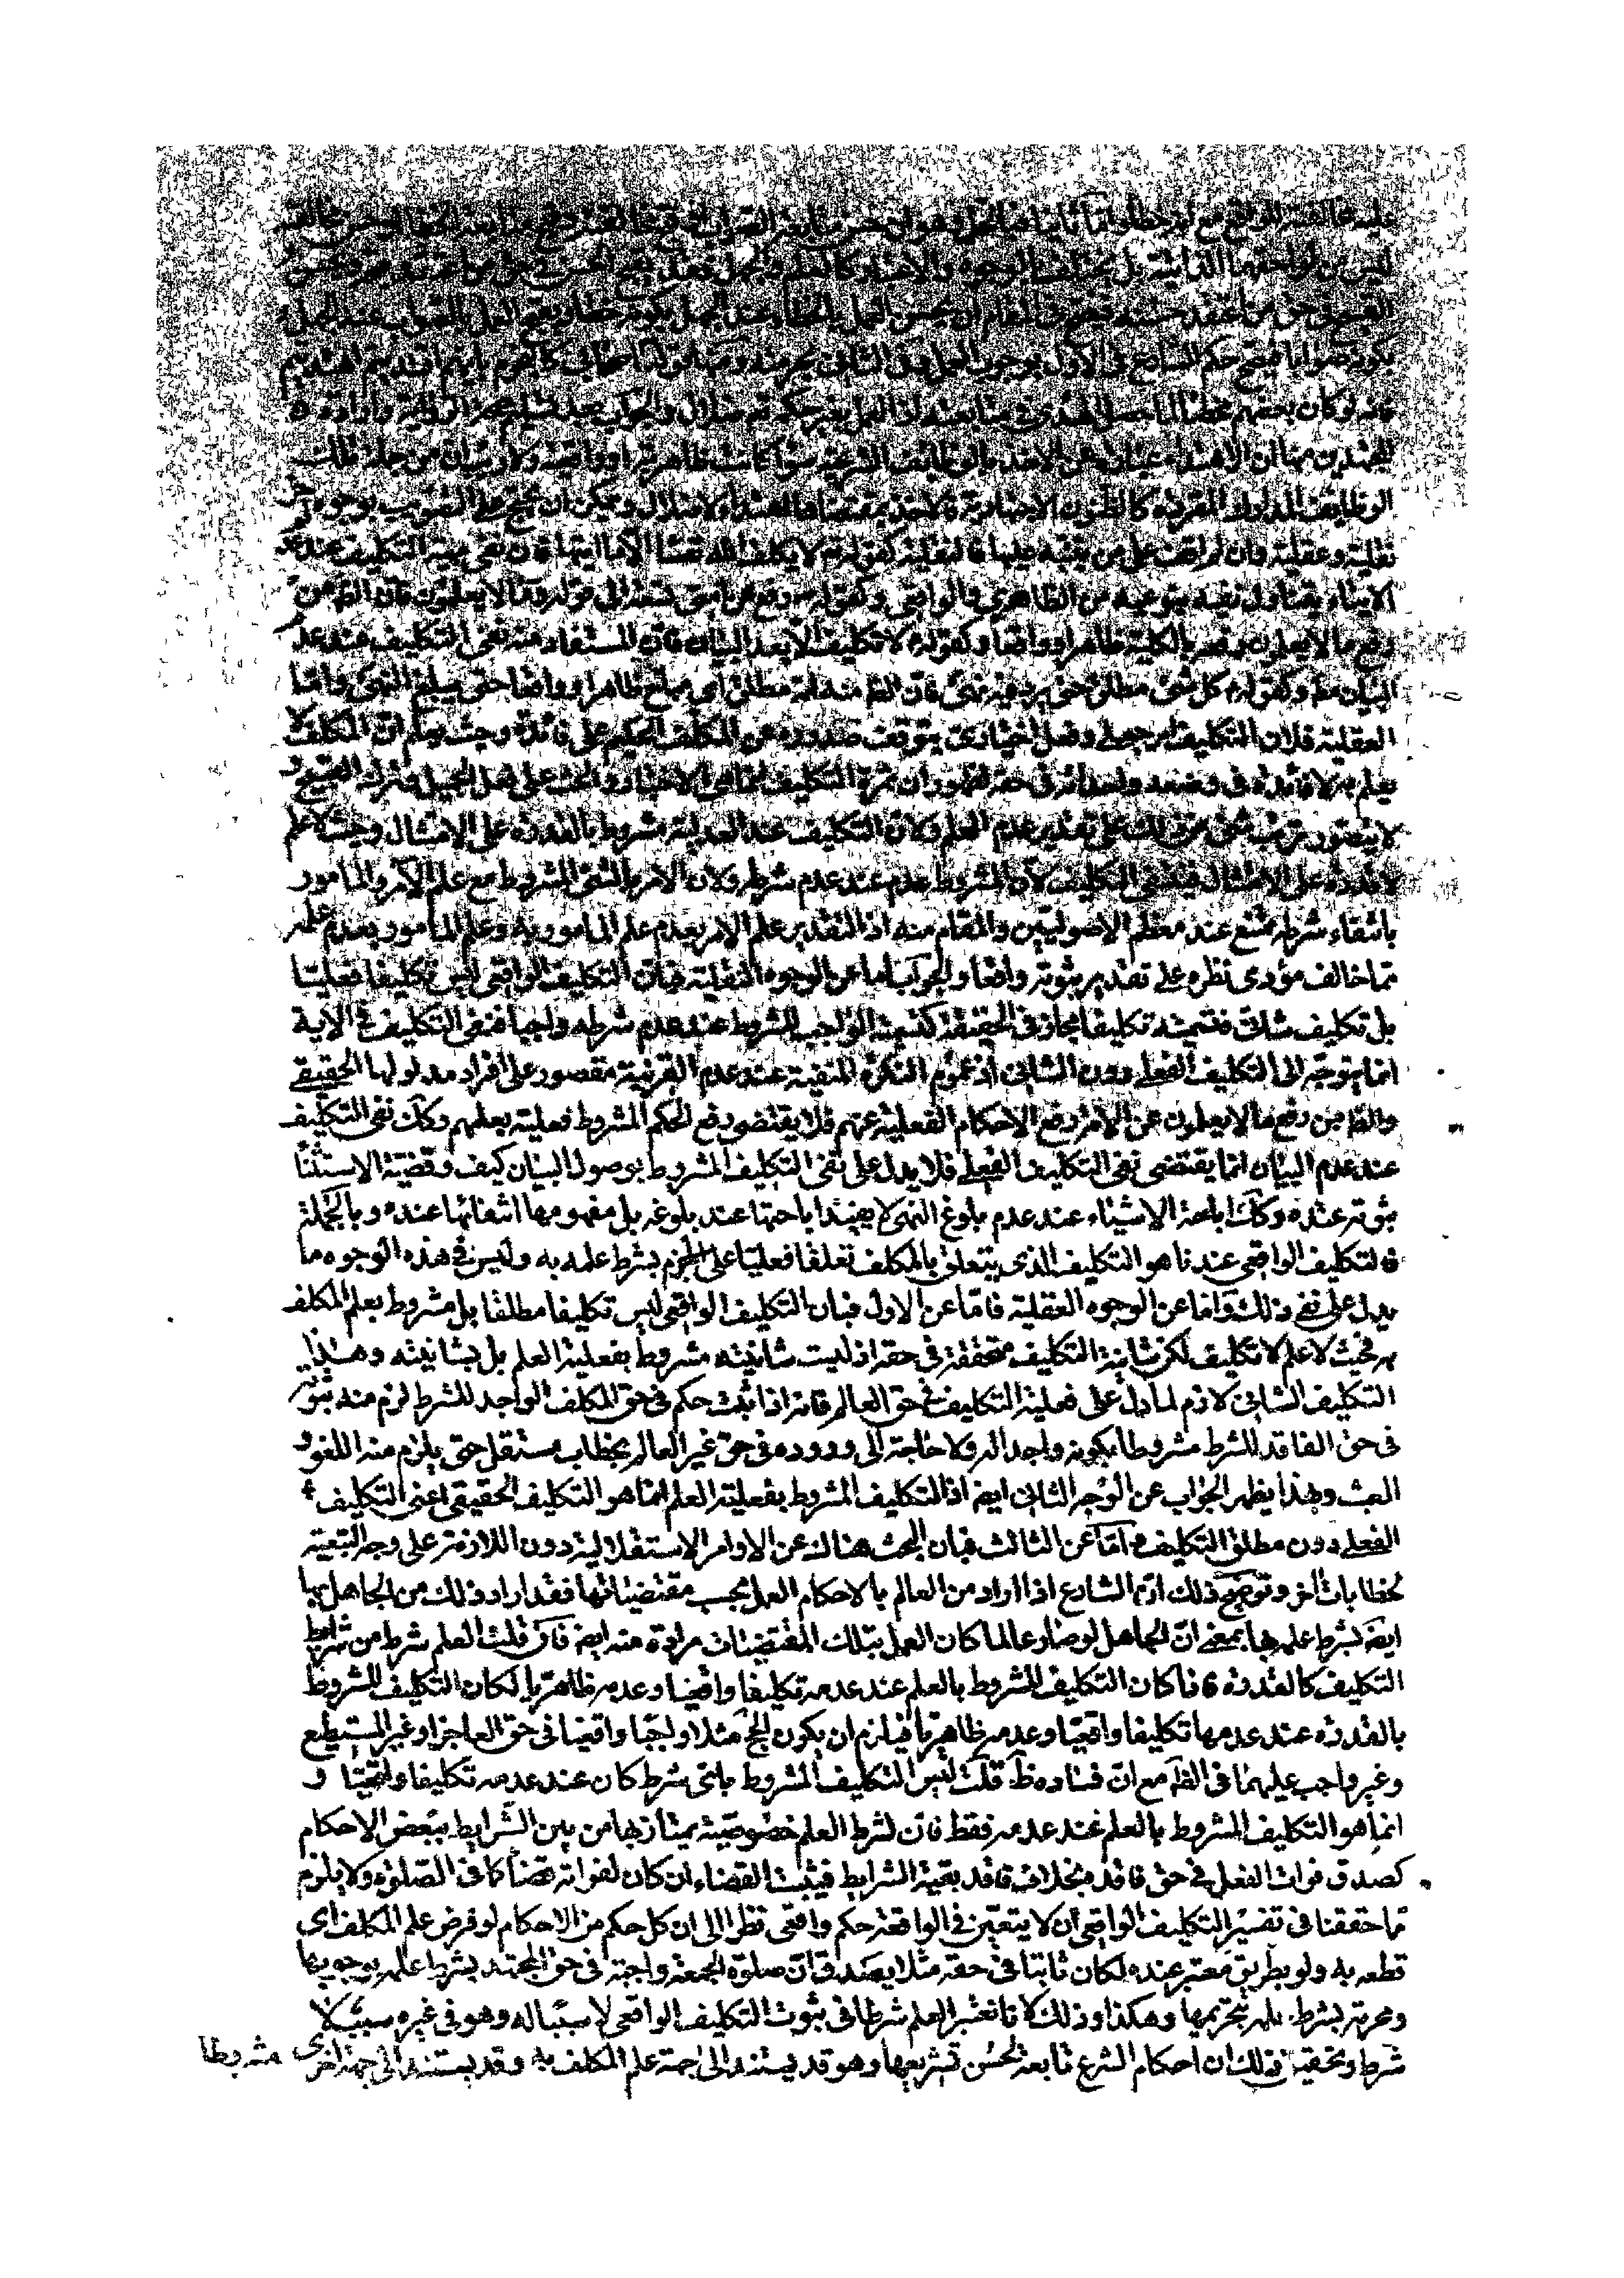 عليه مخالفته للواقع مع
ليس من لواحقهما الذاتية بل يختلف بالوجوه والاعتبار كالعلم والجهل فقد يقبح الحسن في حق من اعتقد قبحه ويحسن
القبيح في حق من اعتقد حسنه فيصح في المقام ان يحسن العمل بالخطاء عند الجهل بكونه خطاء ويقبح العمل بالصواب عند الجهل
بكونه صوابا فيصح حكم الشارع في الاول بوجوب العمل وفي الثاني بحرمته ومنها قوله اصحابي كالنجوم بايهم اقتديتم اهتديتم
فانه لو كان بعضهم مخطئا لما حصل الهدى في متابعته اذ العمل بغير حكمه ضلال والجواب بعد تسليم صحة الرواية وارادة
المجتهدين منها ان الاهتداء عبارة عن الاخذ بالوظايف الشرعية سواء كانت ظاهرية او واقعية ولا ريب ان من جملة تلك
الوظايف المداولة المقررة كالظنون الاجتهادية فالاخذ بمقتضاها اهتداء لا ضلال ويمكن ان يحتج على التصويب بوجوه اخر
نقلية وعقلية وان لم اقف على من ينبه عليها فالنقلية كقوله تع لا يكلف الله نفسا الا ما اتيها فان نفى مهية التكليف عند عدم
الايتاء يتناول نفيه بنوعيه من الظاهري والواقعي وكقوله رفع عن امتي تسعة الى قوله وما لا يعلمون فان الظ من
رفع ما لا يعلمون رفعه بالكلية ظاهرا وواقعا وكقوله لا تكليف الا بعد البيان فان المستفاد منه نفى التكليف عند عدم
البيان مط وكقوله كل شئ مطلق حتى يرد فيه نهى فان الظ منه انه مطلق اي مباح ظاهرا وواقعا حتى يبلغ النهى واما
العقلية فلان التكليف امر جعلي وفعل اختياري يتوقف صدوره عن المكلف الحكيم على فائدة وحيث يعلم ان المكلف لا
يعلم به لا فائدة في وضعه واحداثه في حقه لظهور ان ثمرة التكليف انما هي الاختبار والحث على فعل الجميل وترك القبيح و
لا يتصور ترتب شئ من ذلك على تقدير عدم العلم ولان التكليف عند العدلية مشروط بالقدرة على الامتثال وحيث لا علم
لا قدرة على الامتثال فينتفى التكليف لان المشروط عدم عند عدم شرطه ولان الامر بالشئ المشروط مع علم الآمر والمامور
بانتفاء شرطه ممتنع عند معظم الاصوليين والمقام منه اذ التقدير علم الامر بعدم علم المامور به وعلم المامور بعدم علمه
بما خالف مؤدى نظره على تقدير ثبوته واقعا والجواب اما عن الوجوه النقلية فبان التكليف الواقعي ليس تكليفا فعليا
بل تكليف شانى فتسميته تكليفا مجاز في الحقيقة كتسمية الواجب المشروط عند عدم شرطه واجبا فنفى التكليف في الآية
انما يتوجه الى التكليف الفعلي دون الشانى اذ عموم النكرة المنفية عند عدم القرنية مقصور على افراد مدلولها الحقيقي
والظ من رفع ما لا يعلمون عن الامة رفع الاحكام الفعلية عنهم فلا يقتضى رفع الحكم المشروط فعليته بعلمهم وكك نفى التكليف
عند عدم البيان انما يقتضى نفى التكليف الفعلي فلا يدل على نفى التكليف المشروط بوصول البيان كيف وقضية الاستثنا
ثبوته عنده وكك اباحة الاشياء عند عدم بلوغ النهى لا يفيد اباحتها عند بلوغه بل مفهومها انتفائها عنده وبالجملة
فالتكليف الواقعي عندنا هو التكليف الذي يتعلق بالمكلف تعلقا فعليا على الجزم بشرط علمه به وليس في هذه الوجوه ما
يدل على نفى ذلك واما عن الوجوه العقلية فاما عن الاول فبان التكليف الواقعي ليس تكليفا مطلقا بل مشروط بعلم المكلف
به فحيث لا علم لا تكليف لكن شانية التكليف متحققة في حقه اذ ليست شانيته مشروط بفعلية العلم بل بشانيته وهذا
التكليف الشانى لازم لما دل على فعلية التكليف في حق العالم فانه اذا ثبت حكم في حق المكلف الواجد للشرط لزم منه ثبوته
في حق الفاقد للشرط مشروطا بكونه واجدا له ولا حاجة الى وروده في حق غير العالم بخطاب مستقل حتى يلزم منه اللغو و
العبث وبهذا يظهر الجواب عن الوجه الثانى ايضا اذ التكليف المشروط بفعلية العلم انما هو التكليف الحقيقي اعنى التكليف
الفعلي دون مطلق التكليف واما عن الثالث فبان البحث هناك عن الاوامر الاستقلالية دون اللازمة على وجه التبعية
لخطابات اخر وتوضيح ذلك ان الشارع اذا اراد من العالم بالاحكام العمل بحسب مقتضياتها فقد اراد ذلك من الجاهل بها
ايضا بشرط علمه بها بمعنى ان الجاهل لو صار عالما كان العمل بتلك المقتضيات مرادة منه ايضا فان قلت العلم شرط من شرايط
التكليف كالقدرة فلو كان التكليف المشروط بالعلم عند عدمه تكليفا واقعيا وعدمه ظاهريا لكان التكليف المشروط
بالقدرة عند عدمها تكليفا واقعيا وعدمه ظاهريا فيلزم ان يكون الحج مثلا واجبا واقعيا في حق العاجز او غير المستطيع
وغير واجب عليهما في الظ مع ان فساده ظ قلت ليس التكليف المشروط باى شرط كان عند عدمه تكليفا واقعيا و
انما هو التكليف المشروط بالعلم عند عدمه فقط فان لشرط العلم خصوصية يمتاز بها من بين الشرايط ببعض الاحكام
كصدق فوات الفعل في حق فاقده بخلاف فاقد بقية الشرايط فيثبت القضاء ان كان لفواته قضاء كما في الصلوة ولا يلزم
مما حققنا في تفسير التكليف الواقعي ان لا يتعين في الواقعة حكم واقعي نظرا الى ان كل حكم من الاحكام لو فرض علم المكلف اى
قطعه به ولو بطريق معتبر عنده لكان ثابتا في حقه مثلا يصدق ان صلوة الجمعة واجبة في حق المجتهد بشرط علمه بوجوبها
ومحرمة بشرط علمه بتحريمها وهكذا وذلك لانا نعتبر العلم شرطا في ثبوت التكليف الواقعي لا سببا له وهو في غيره سبب لا
شرط وتحقيق ذلك ان احكام الشرع تابعة لحسن تشريعها وهو قد يستند الى جهة علم المكلف به وقد يستند الى جهة اخرى
مشروطا